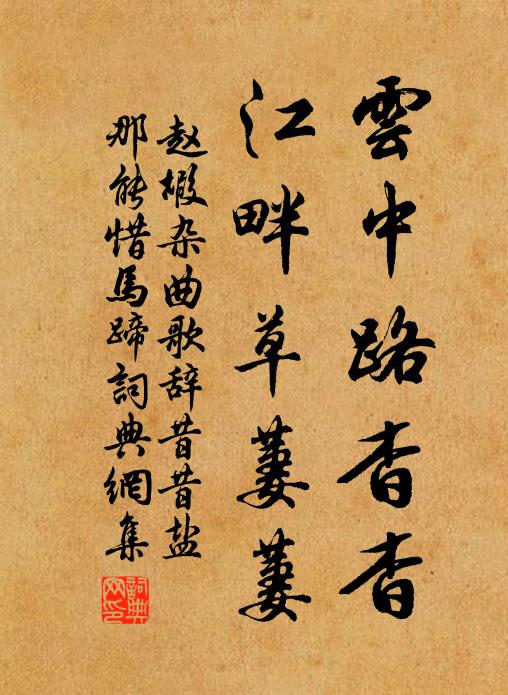 雲中路杳杳
江畔草萋萋
赵嘏杂曲歌辞昔昔盐
那能惜馬蹄詞典網集
詞典网印